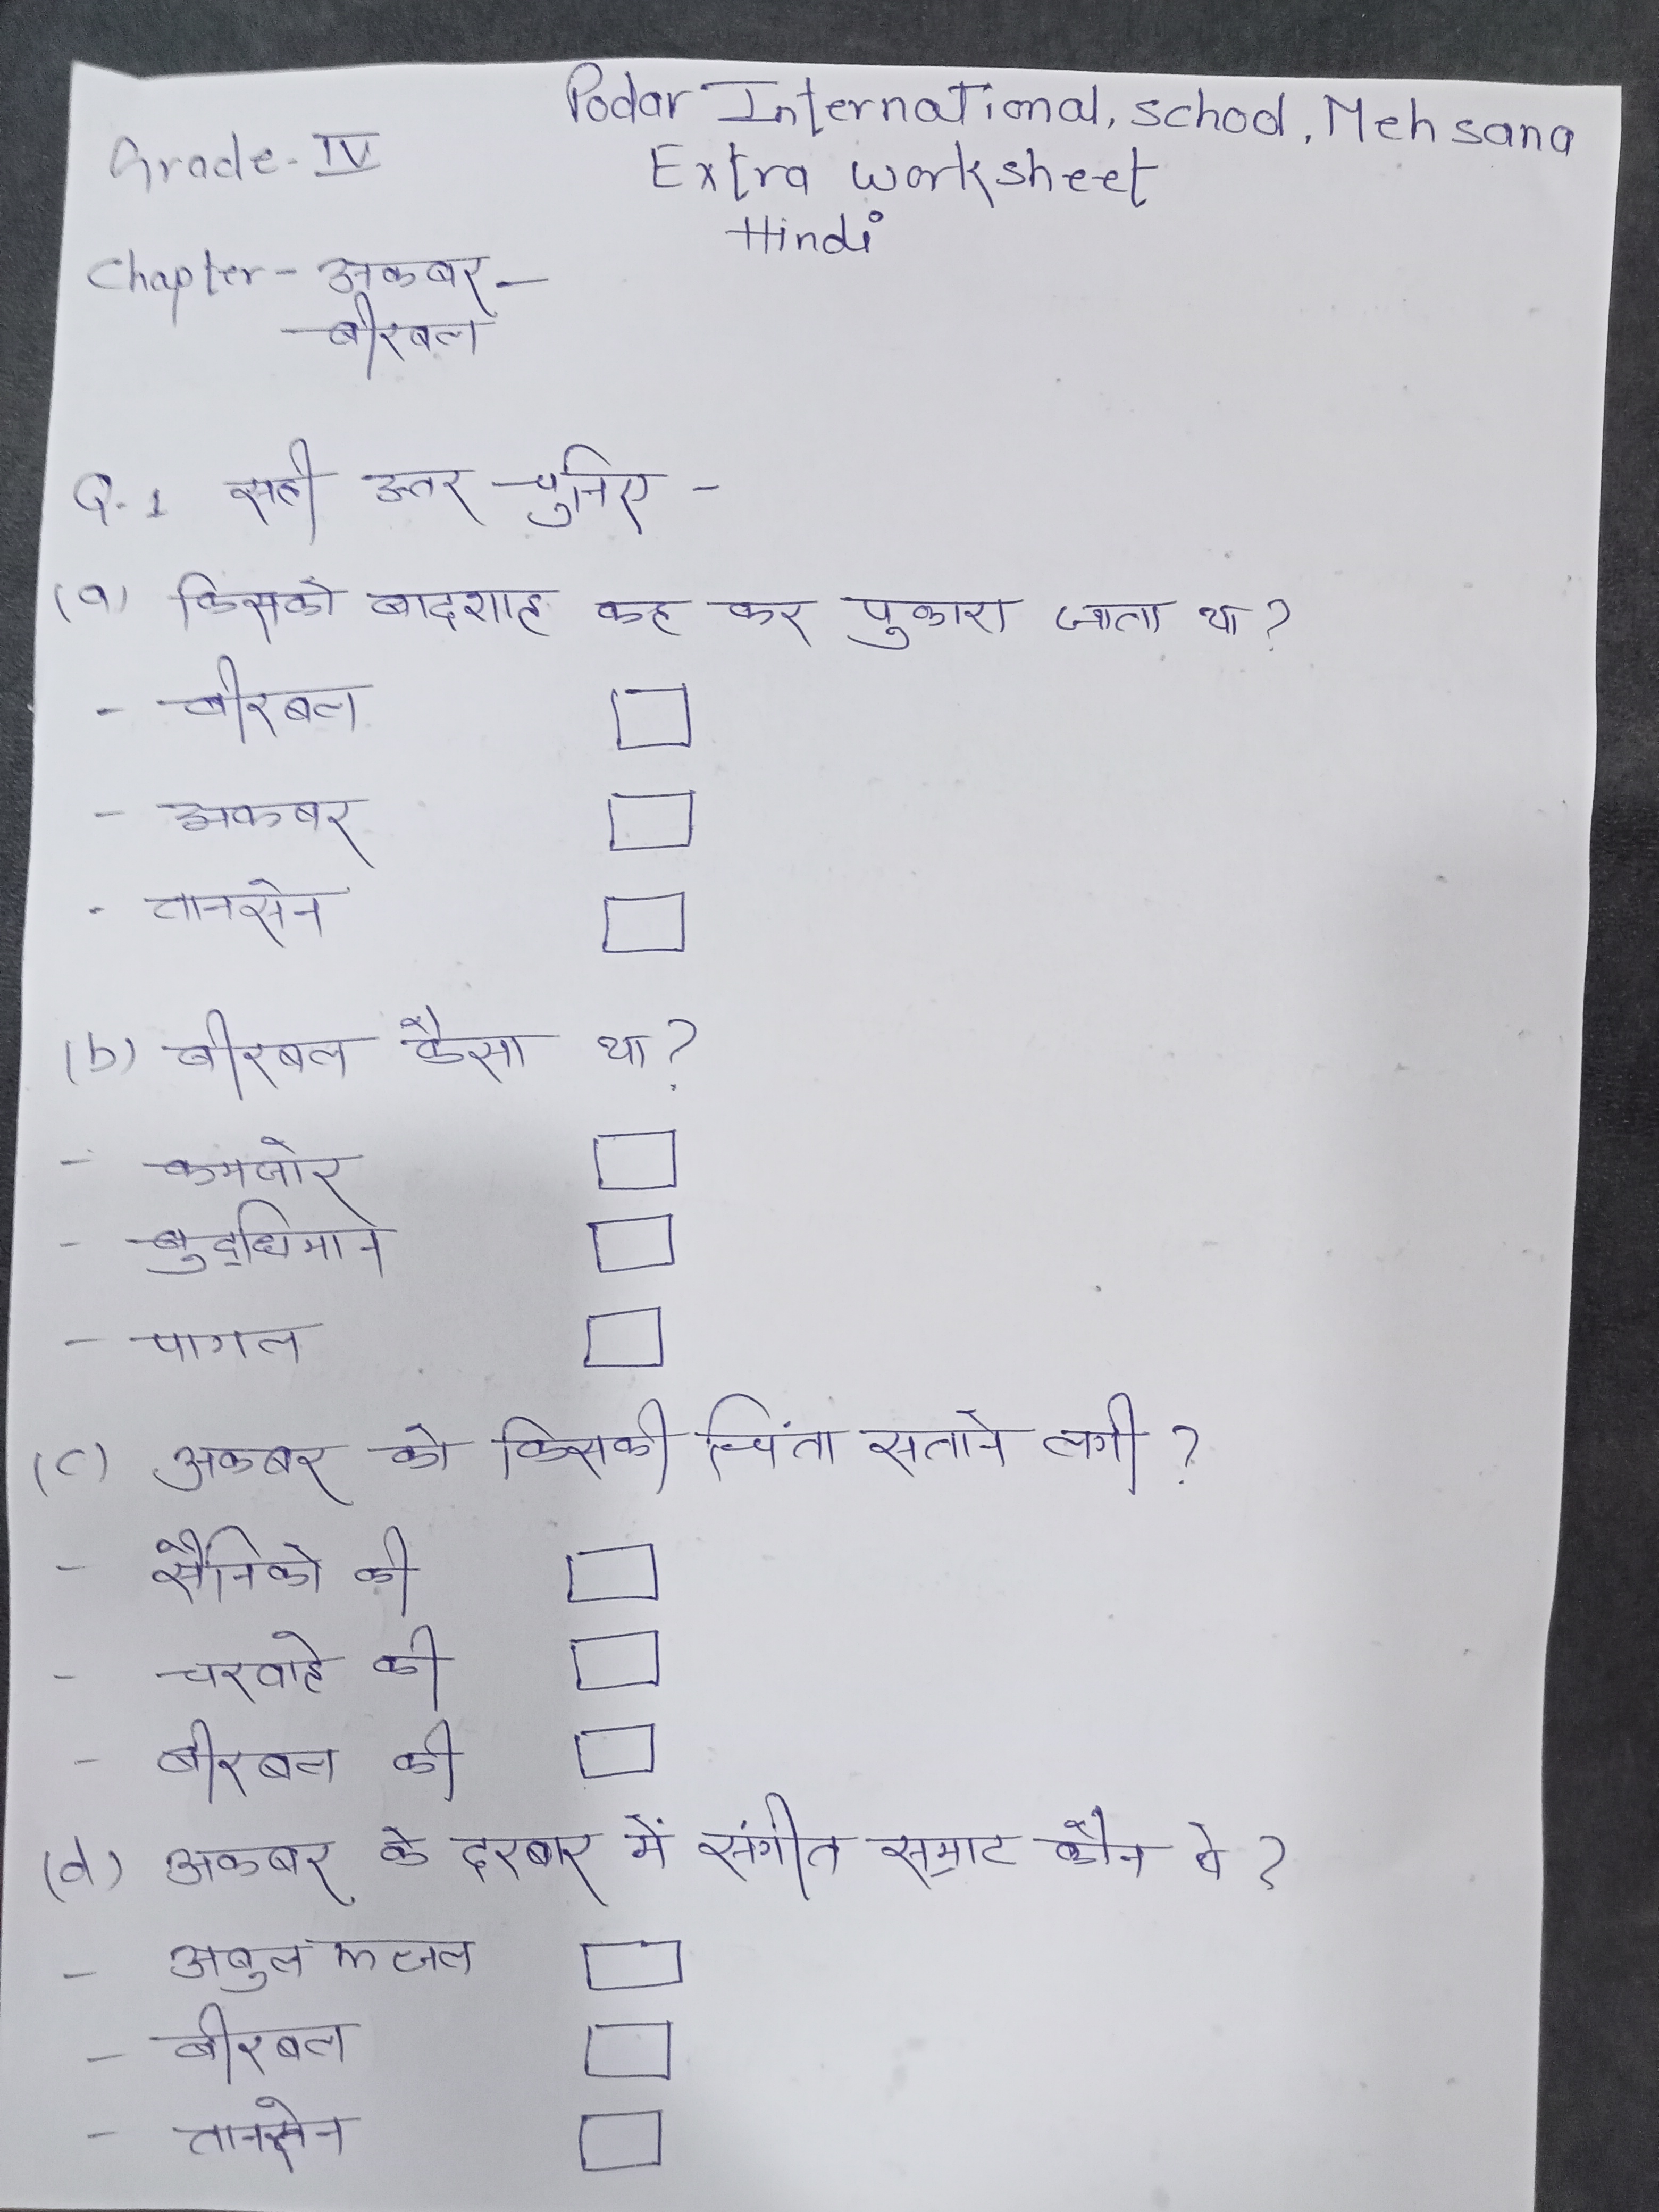 Podar International, school, Mehsana
Grade - IV
Extra worksheet
Hindi
Chapter - अकबर -
बीरबल
Q. 1 सही उत्तर चुनिए -
(a) किसको बादशाह कह कर पुकारा जाता था?
- बीरबल
- अकबर
- तानसेन
(b) बीरबल कैसा था?
- कमजोर
- बुद्धिमान
- पागल
(c) अकबर को किसकी चिंता सताने लगी?
- सैनिको की
- चरवाहे की
- बीरबल की
(d) अकबर के दरबार में संगीत सम्राट कौन थे?
- अबुल फजल
- बीरबल
- तानसेन